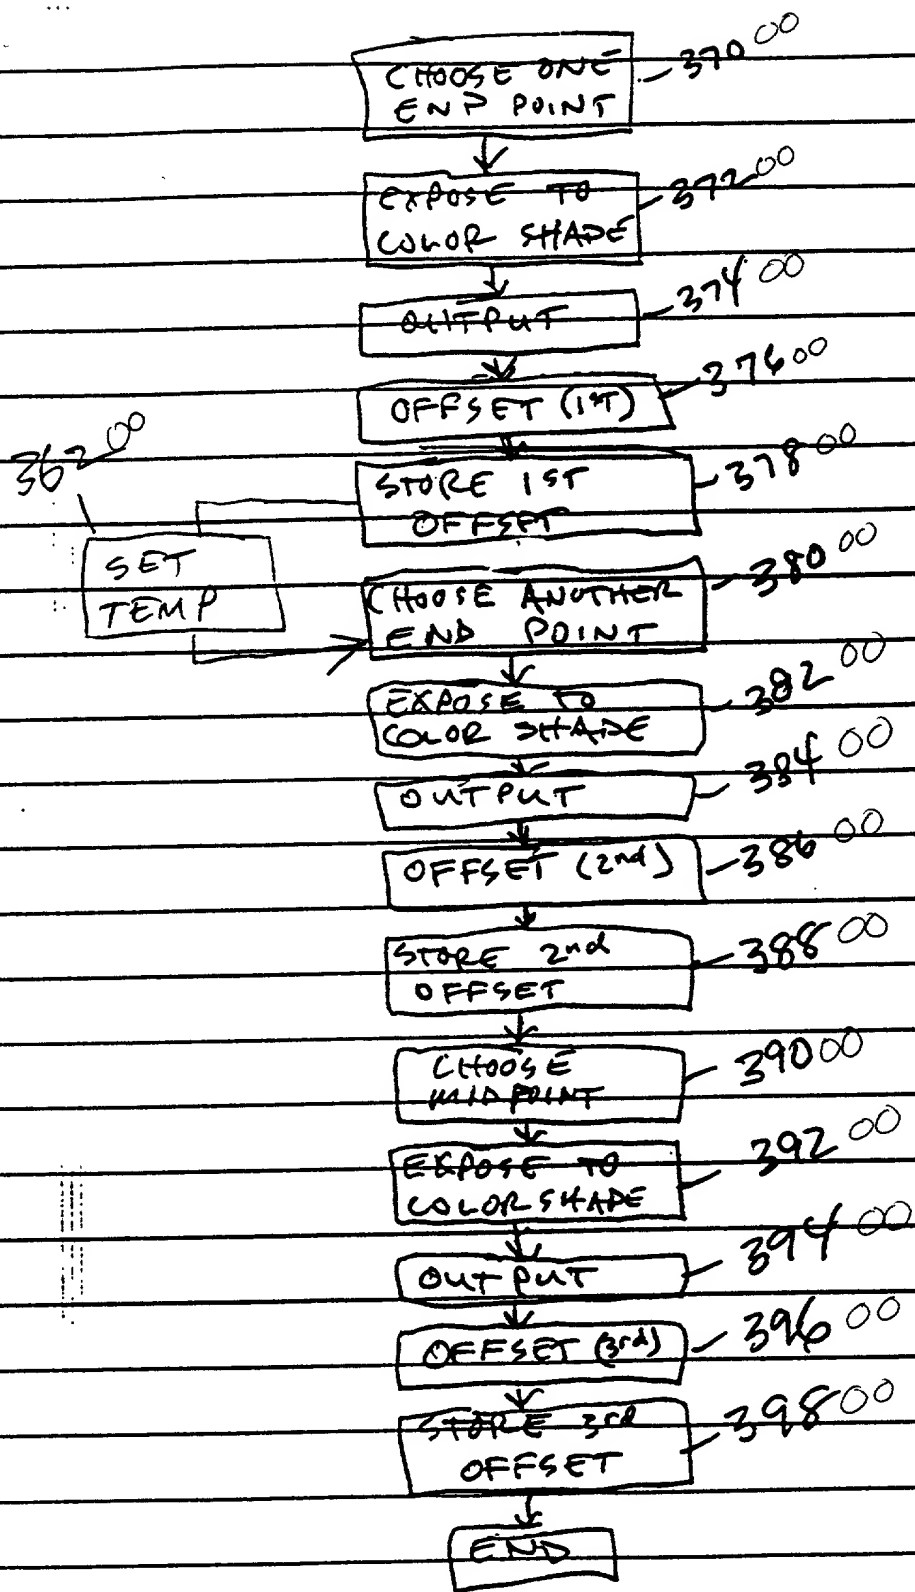 CHOOSE ONE
END POINT
37000
EXPOSE TO
COLOR SHADE
37200
OUTPUT
37400
OFFSET (1ST)
37600
STORE 1ST
OFFSET
37800
36200
SET
TEMP
CHOOSE ANOTHER
END POINT
38000
EXPOSE TO
COLOR SHADE
38200
OUTPUT
38400
OFFSET (2nd)
38600
STORE 2nd
OFFSET
38800
CHOOSE
MIDPOINT
39000
EXPOSE TO
COLOR SHADE
39200
OUTPUT
39400
OFFSET (3rd)
39600
STORE 3rd
OFFSET
39800
END